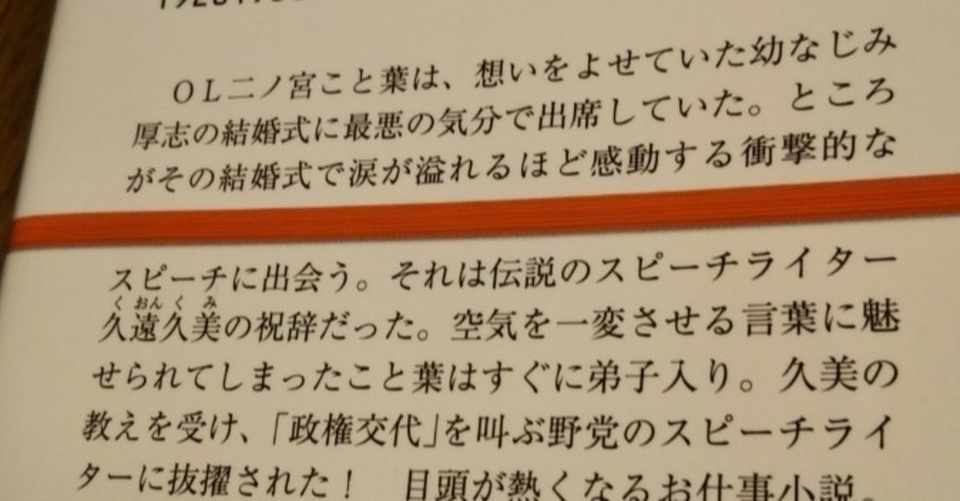 OL二ノ宮こと葉は、想いをよせていた幼なじみ
厚志の結婚式に最悪の気分で出席していた。ところ
がその結婚式で涙が溢れるほど感動する衝撃的な
スピーチに出会う。それは伝説のスピーチライター
くおんくみ
久遠久美の祝辞だった。空気を一変させる言葉に魅
せられてしまったこと葉はすぐに弟子入り。久美の
教えを受け、「政権交代」を叫ぶ野党のスピーチライ
ターに抜擢された！ 目頭が熱くなるお仕事小説。